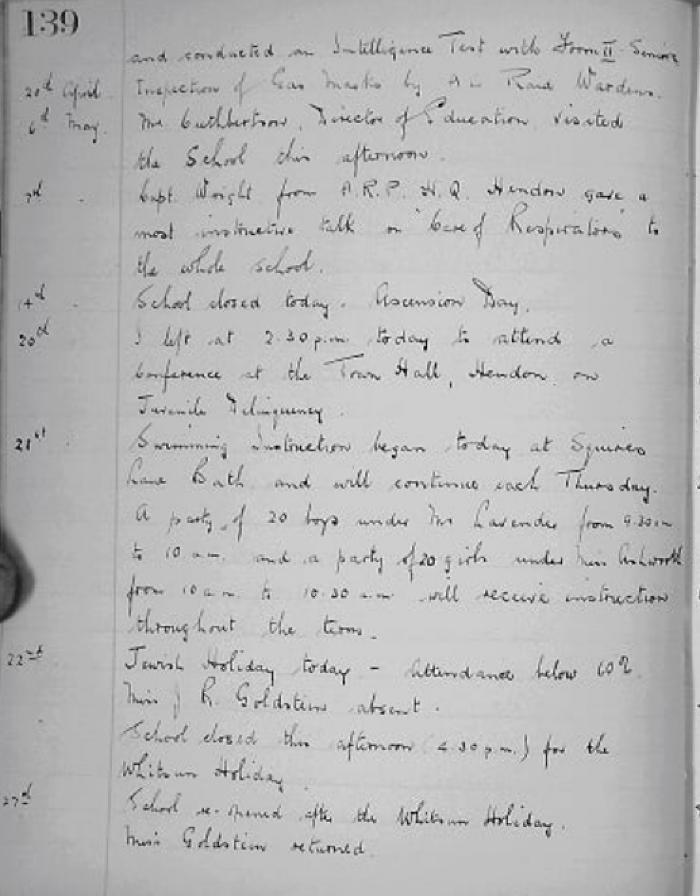 139
and conducted an Intelligence Test with Form II Seniors
20th April. Inspection of Gas Masks by Air Raid Wardens.
6th May. Mr Cuthbertson, Director of Education, visited
the School this afternoon.
7th . Capt. Wright from A.R.P. H.Q. Hendon gave a
most instructive talk on 'Care of Respirators' to
the whole school.
14th . School closed today. Ascension Day.
20th I left at 2.30 p.m. today to attend a
Conference at the Town Hall, Hendon on
Juvenile Delinquency.
21st . Swimming Instruction began today at Squires
Lane Bath and will continue each Thursday.
A party of 20 boys under Mr Lavender from 9.30 am
to 10 a.m. and a party of 20 girls under Miss Ashworth
from 10 a.m. to 10.30 a.m. will receive instruction
throughout the term.
22nd Jewish Holiday today - Attendance below 60%.
Miss J R. Goldstein absent.
School closed this afternoon (4.30 p.m.) for the
Whitsun Holiday
27th School re-opened after the Whitsun Holiday.
Miss Goldstein returned.